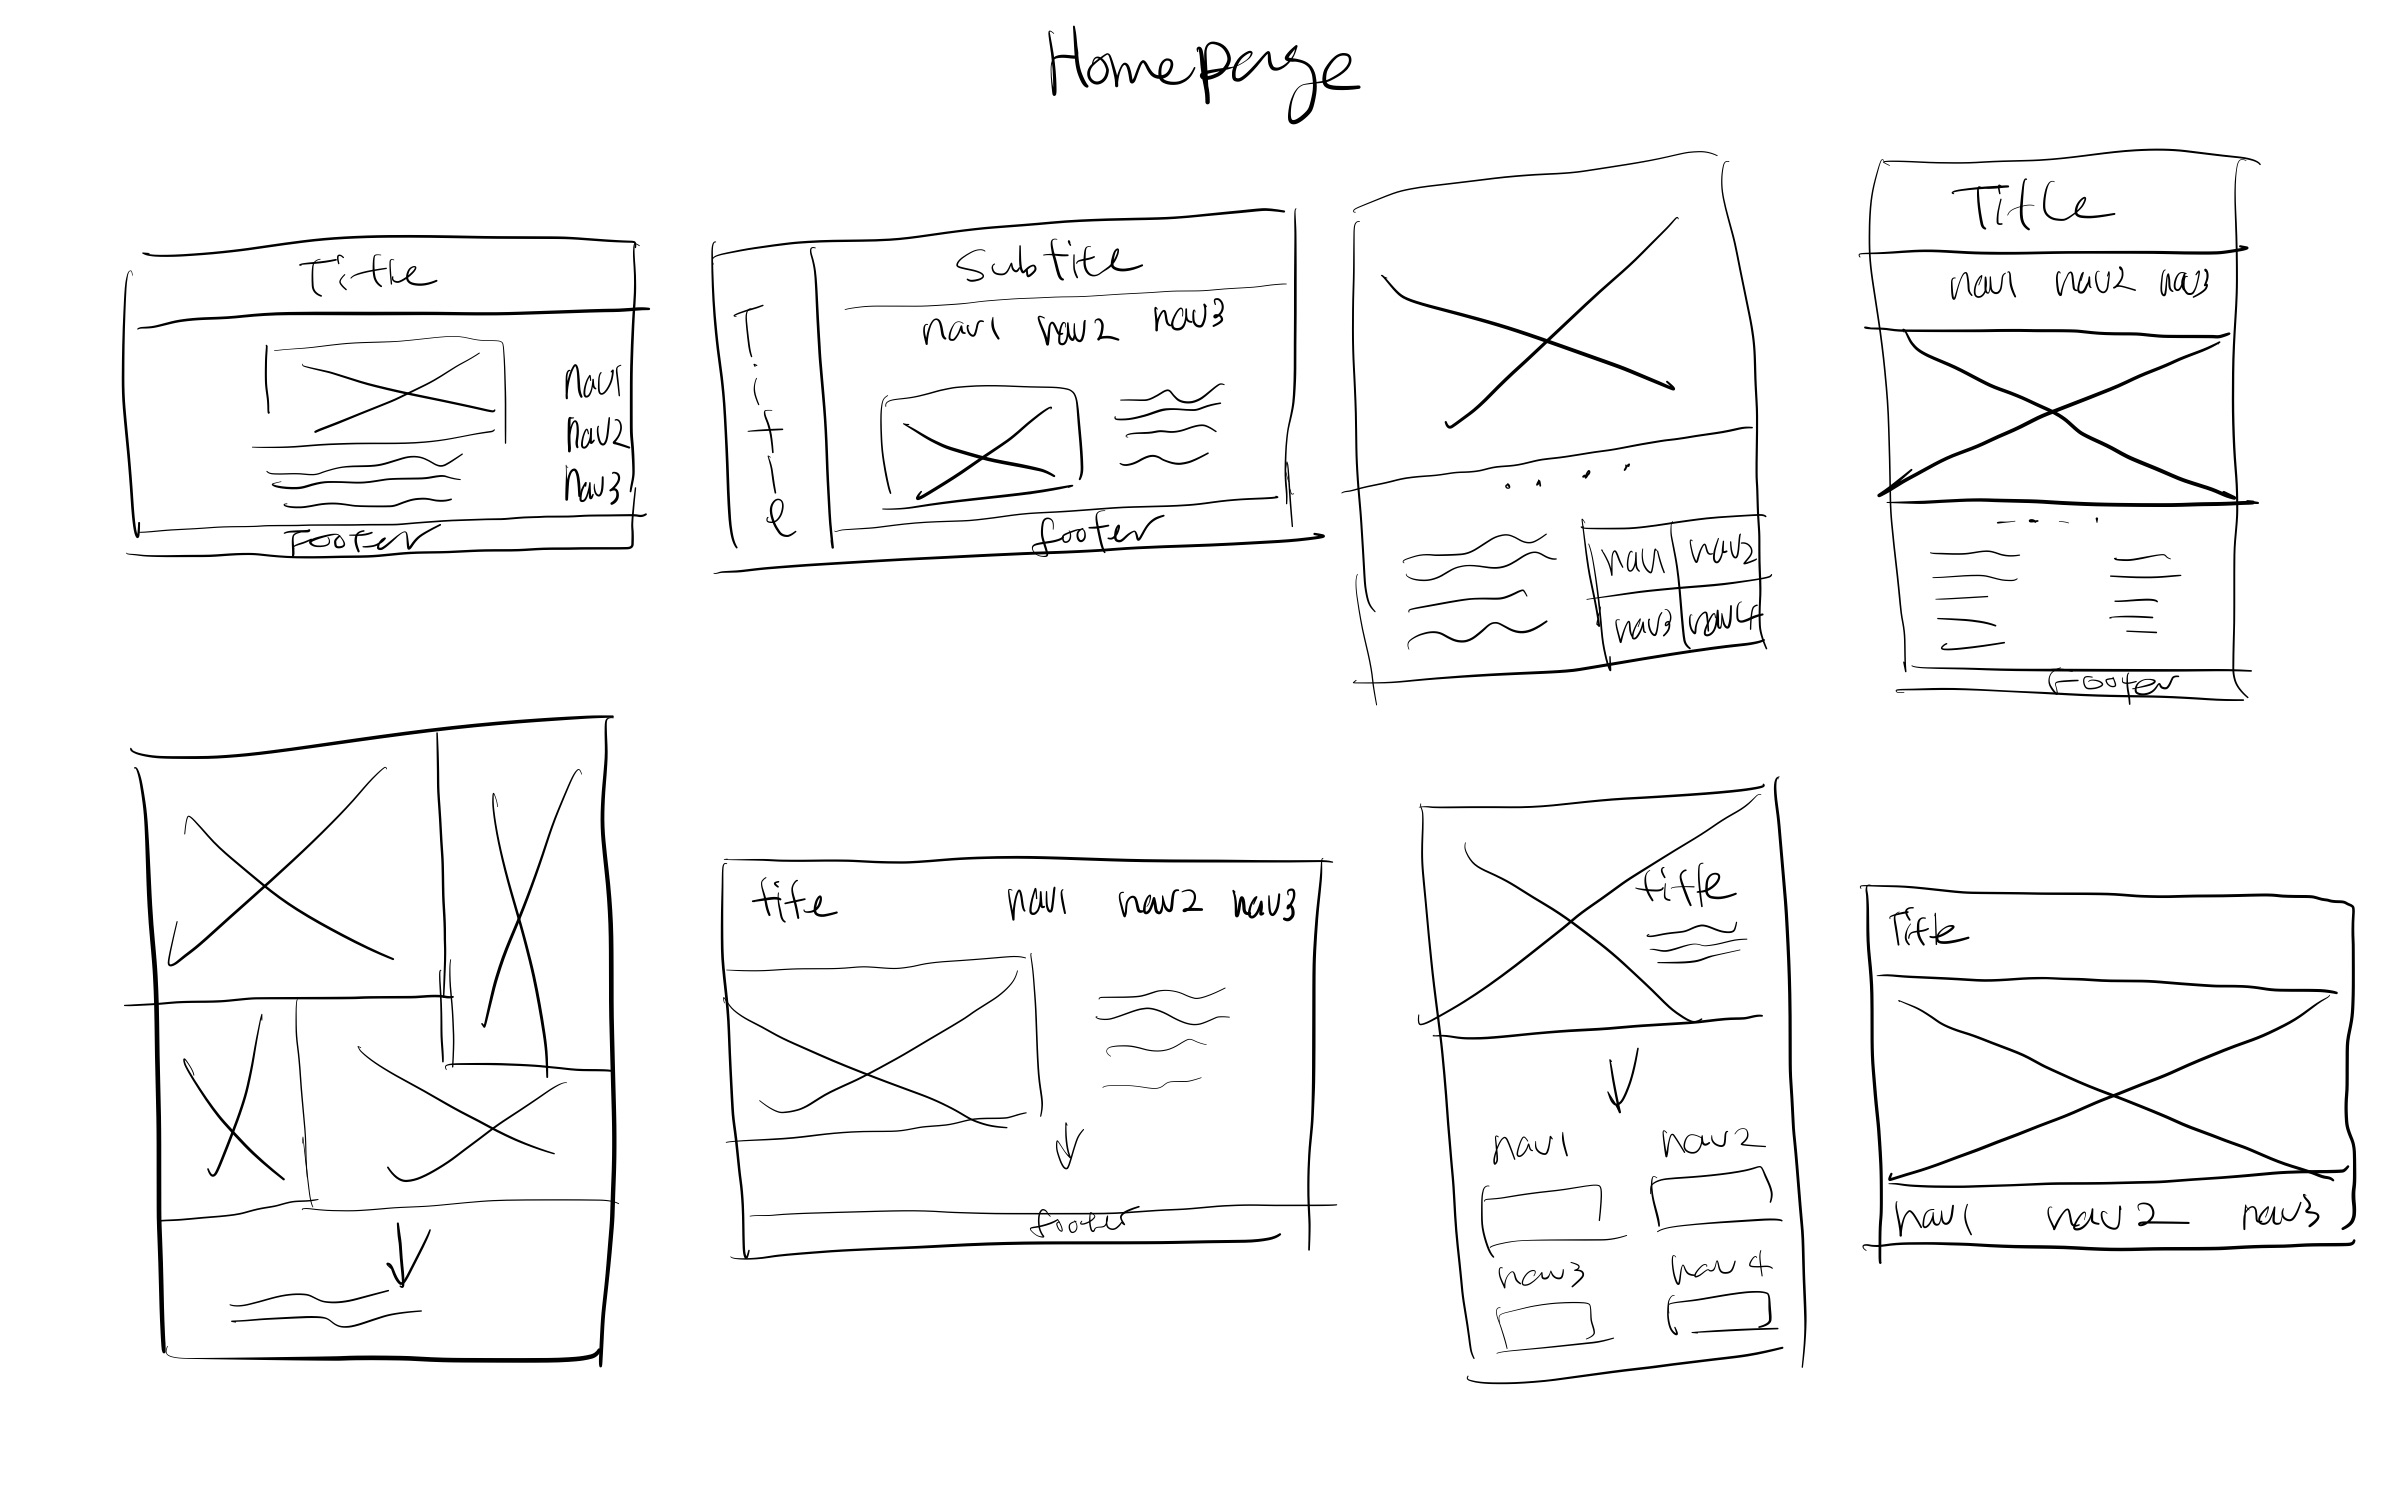 Homepage
Title
nav1
nav2
nav3
Footer
Title
Subtitle
nav1 nav2 nav3
footer
nav1 nav2
nav3 nav4
Title
nav1 nav2 nav3
Footer
title nav1 nav2 nav3
footer
title
nav1 nav2
nav3 nav4
Title
nav1 nav2 nav3